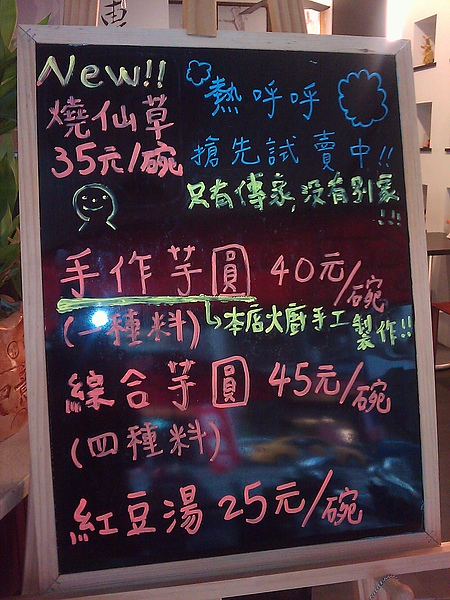 New!!
燒仙草
35元/碗
熱呼呼
搶先試賣中!!
只有傳家,沒有別家
!!!
手作芋圓 40元/碗
(一種料)
↳本店大廚手工製作!!
綜合芋圓 45元/碗
(四種料)
紅豆湯 25元/碗